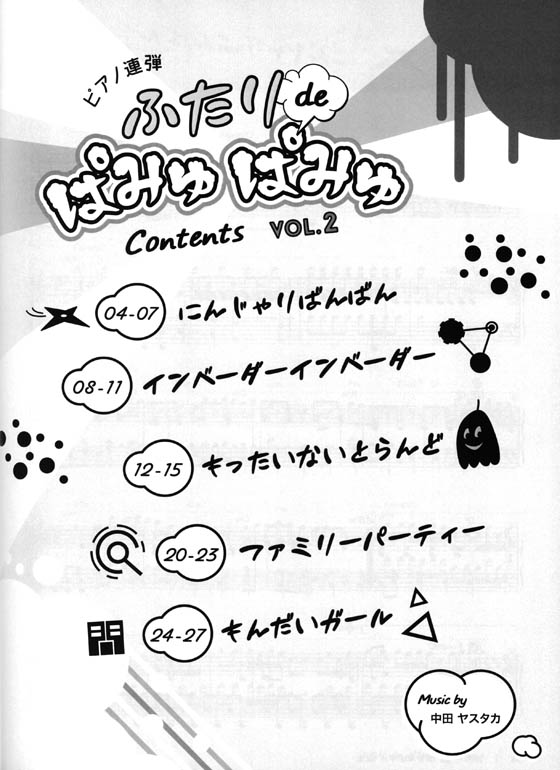 ピアノ連弾
ふたり de
ぱみゅぱみゅ
Contents VOL.2
04-07 にんじゃりばんばん
08-11 インベーダーインベーダー
12-15 もったいないとらんど
20-23 ファミリーパーティー
24-27 もんだいガール
Music by
中田 ヤスタカ